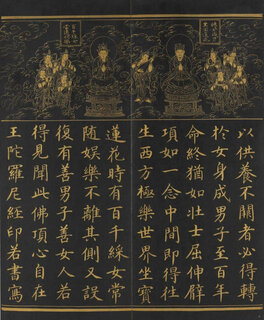 以供養不闕者必得轉
於女身成男子至百年
命終猶如壯士屈伸臂
項如一念中間即得往
生西方極樂世界坐寶
蓮花時有百千綵女常
随娛樂不離其側又設
復有善男子善女人若
得見聞此佛頂心自在
王陀羅尼經印若書寫